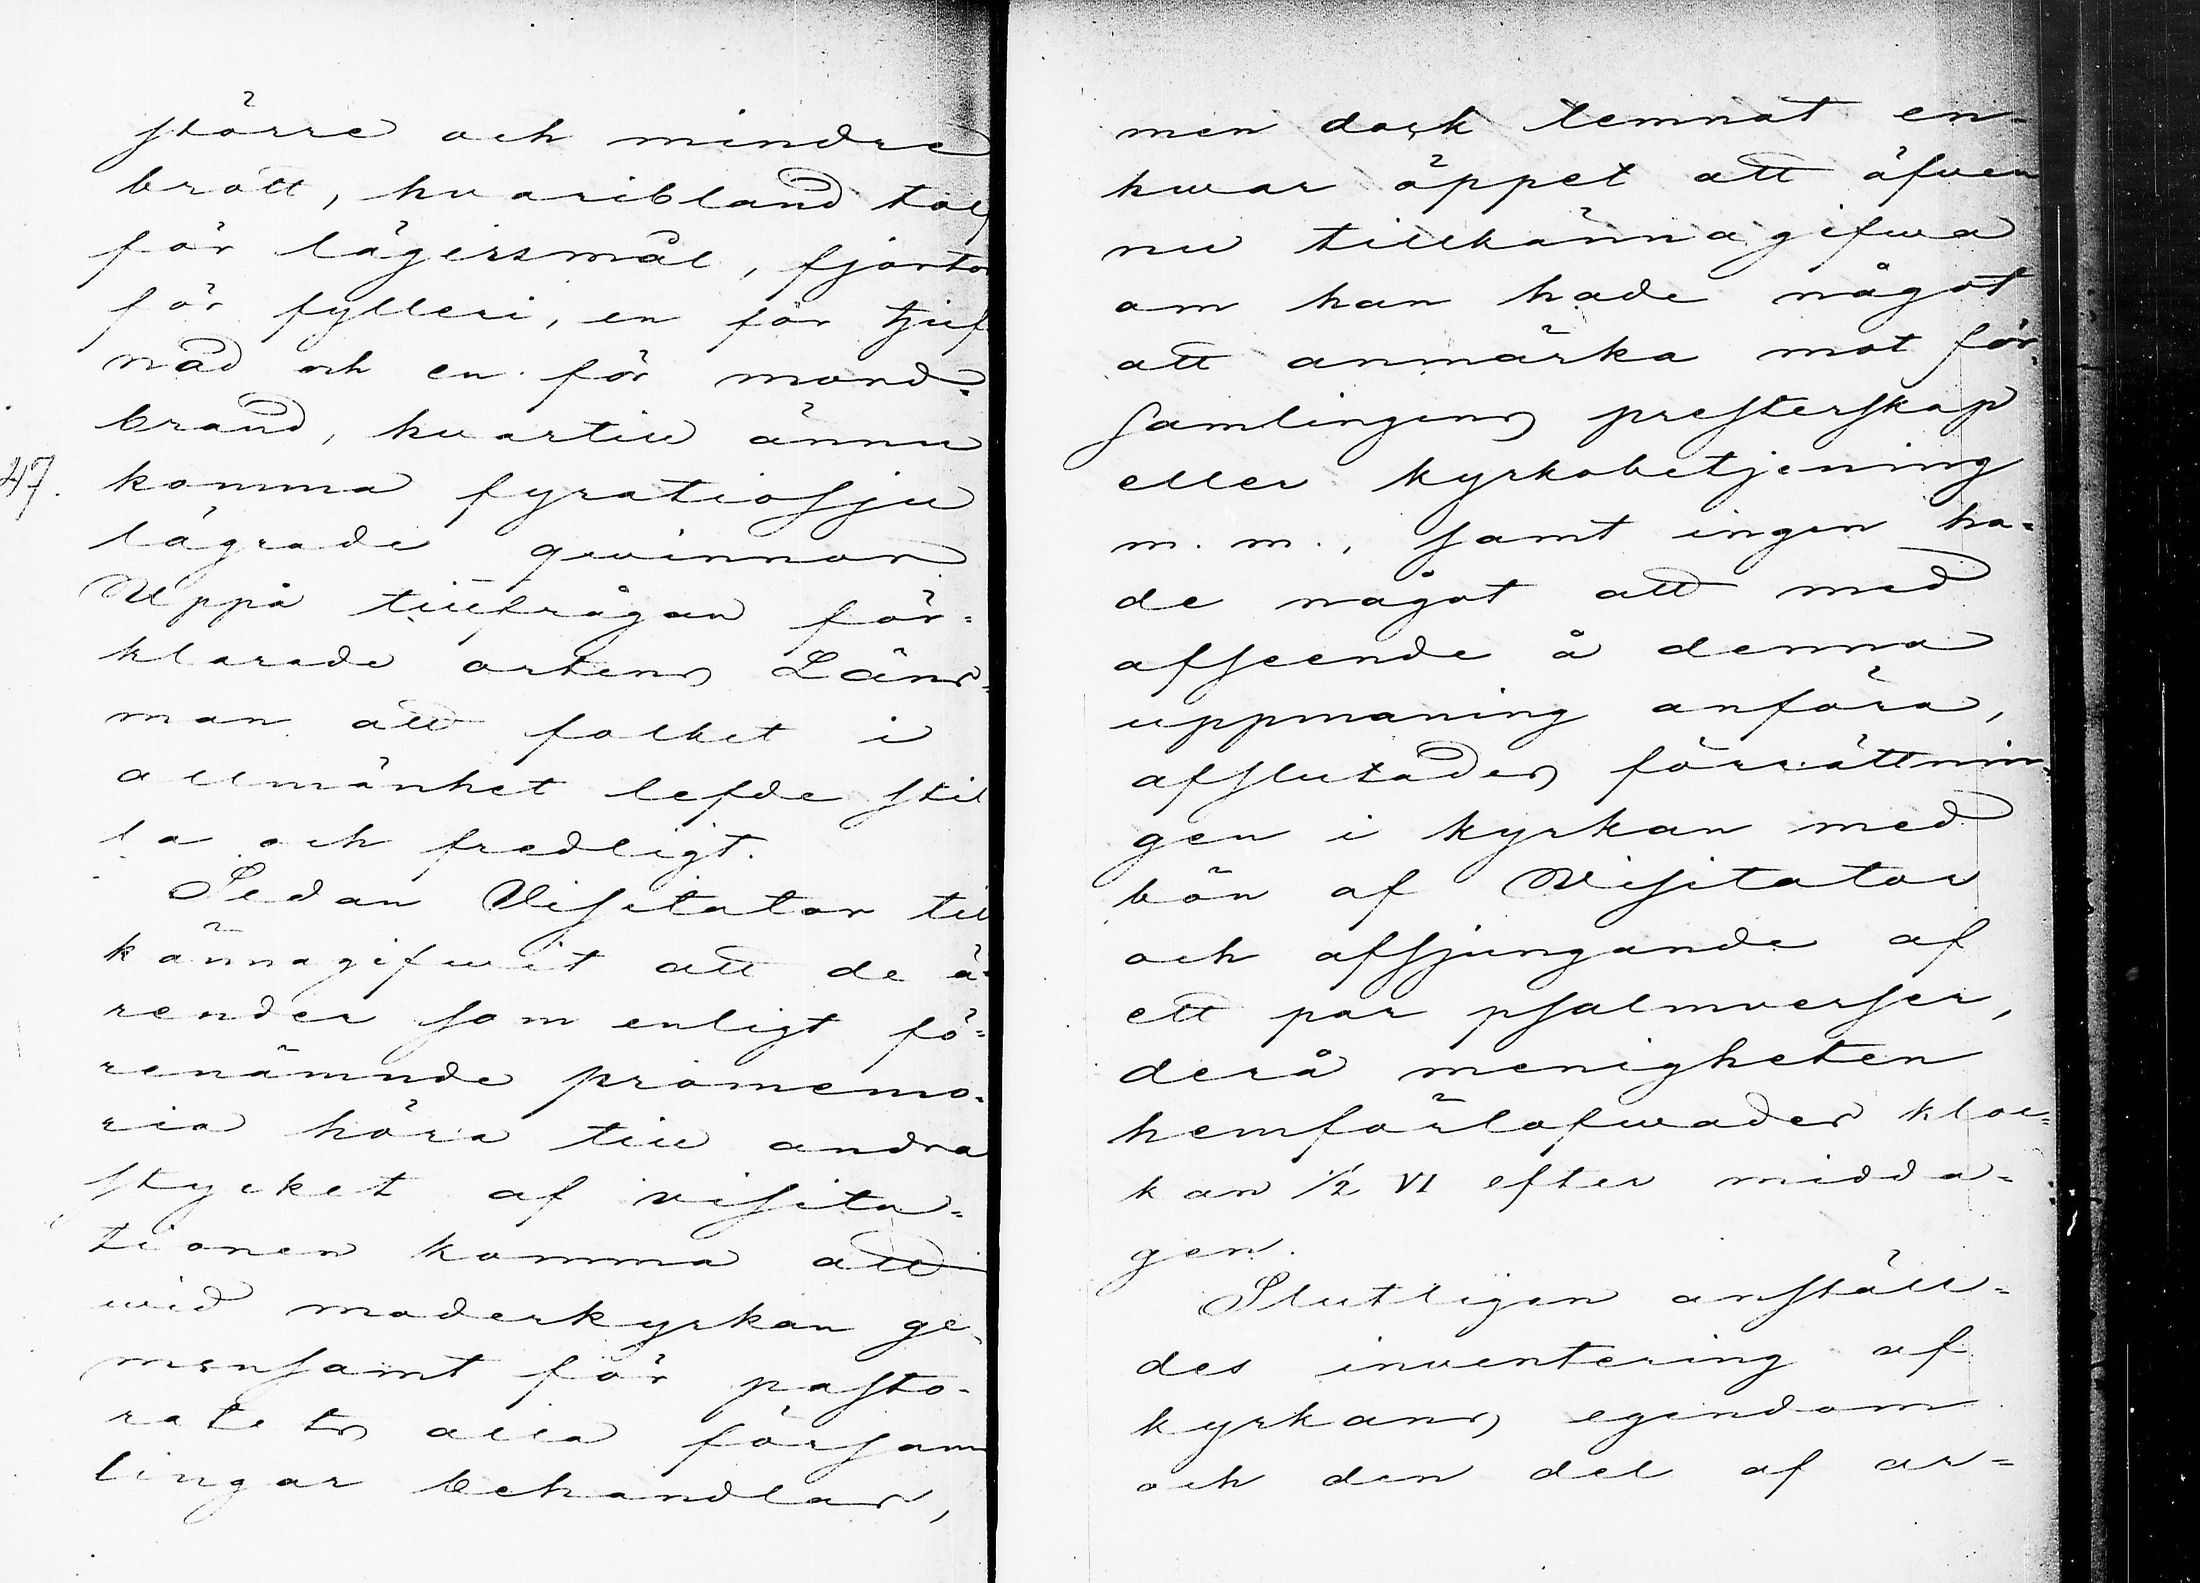 större och mindre
brott, hvaribland tolf
för lägersmål, fjorton
för fylleri, en för tjuf
nad och en för mord=
brand, hvartill ännu
47. komma fyratiosju
lägrade qvinnor
Uppå tillfrågan för=
klarade ortens Läns=
man att folket i
allmänhet lefde stil
la och fredligt.
Sedan Visitator till
kännagifwit att de ä=
render som enligt fö=
renämnde promemo=
ria höra till andra
stycket af visita=
tionen komma att
wid moderkyrkan ge=
mensamt för pasto=
ratets alla försam
lingar behandlas,
men dock lemnat en=
hwar öppet att äfven
nu tillkännagifwa
om han hade något
att anmärka mot för=
samlingens presterskap
eller kyrkobetjening
m. m., samt ingen ha=
de något att med
afseende å denna
uppmaning anföra,
afslutades förrättnin=
gen i kyrkan med
bön af Visitator
och afsjungande af
ett par psalmverser,
derå menigheten
hemförlofwades kloc=
kan 1/2 VI efter midda=
gen.
Slutligen anställ=
des inventering af
kyrkans egendom
och den del af ar=